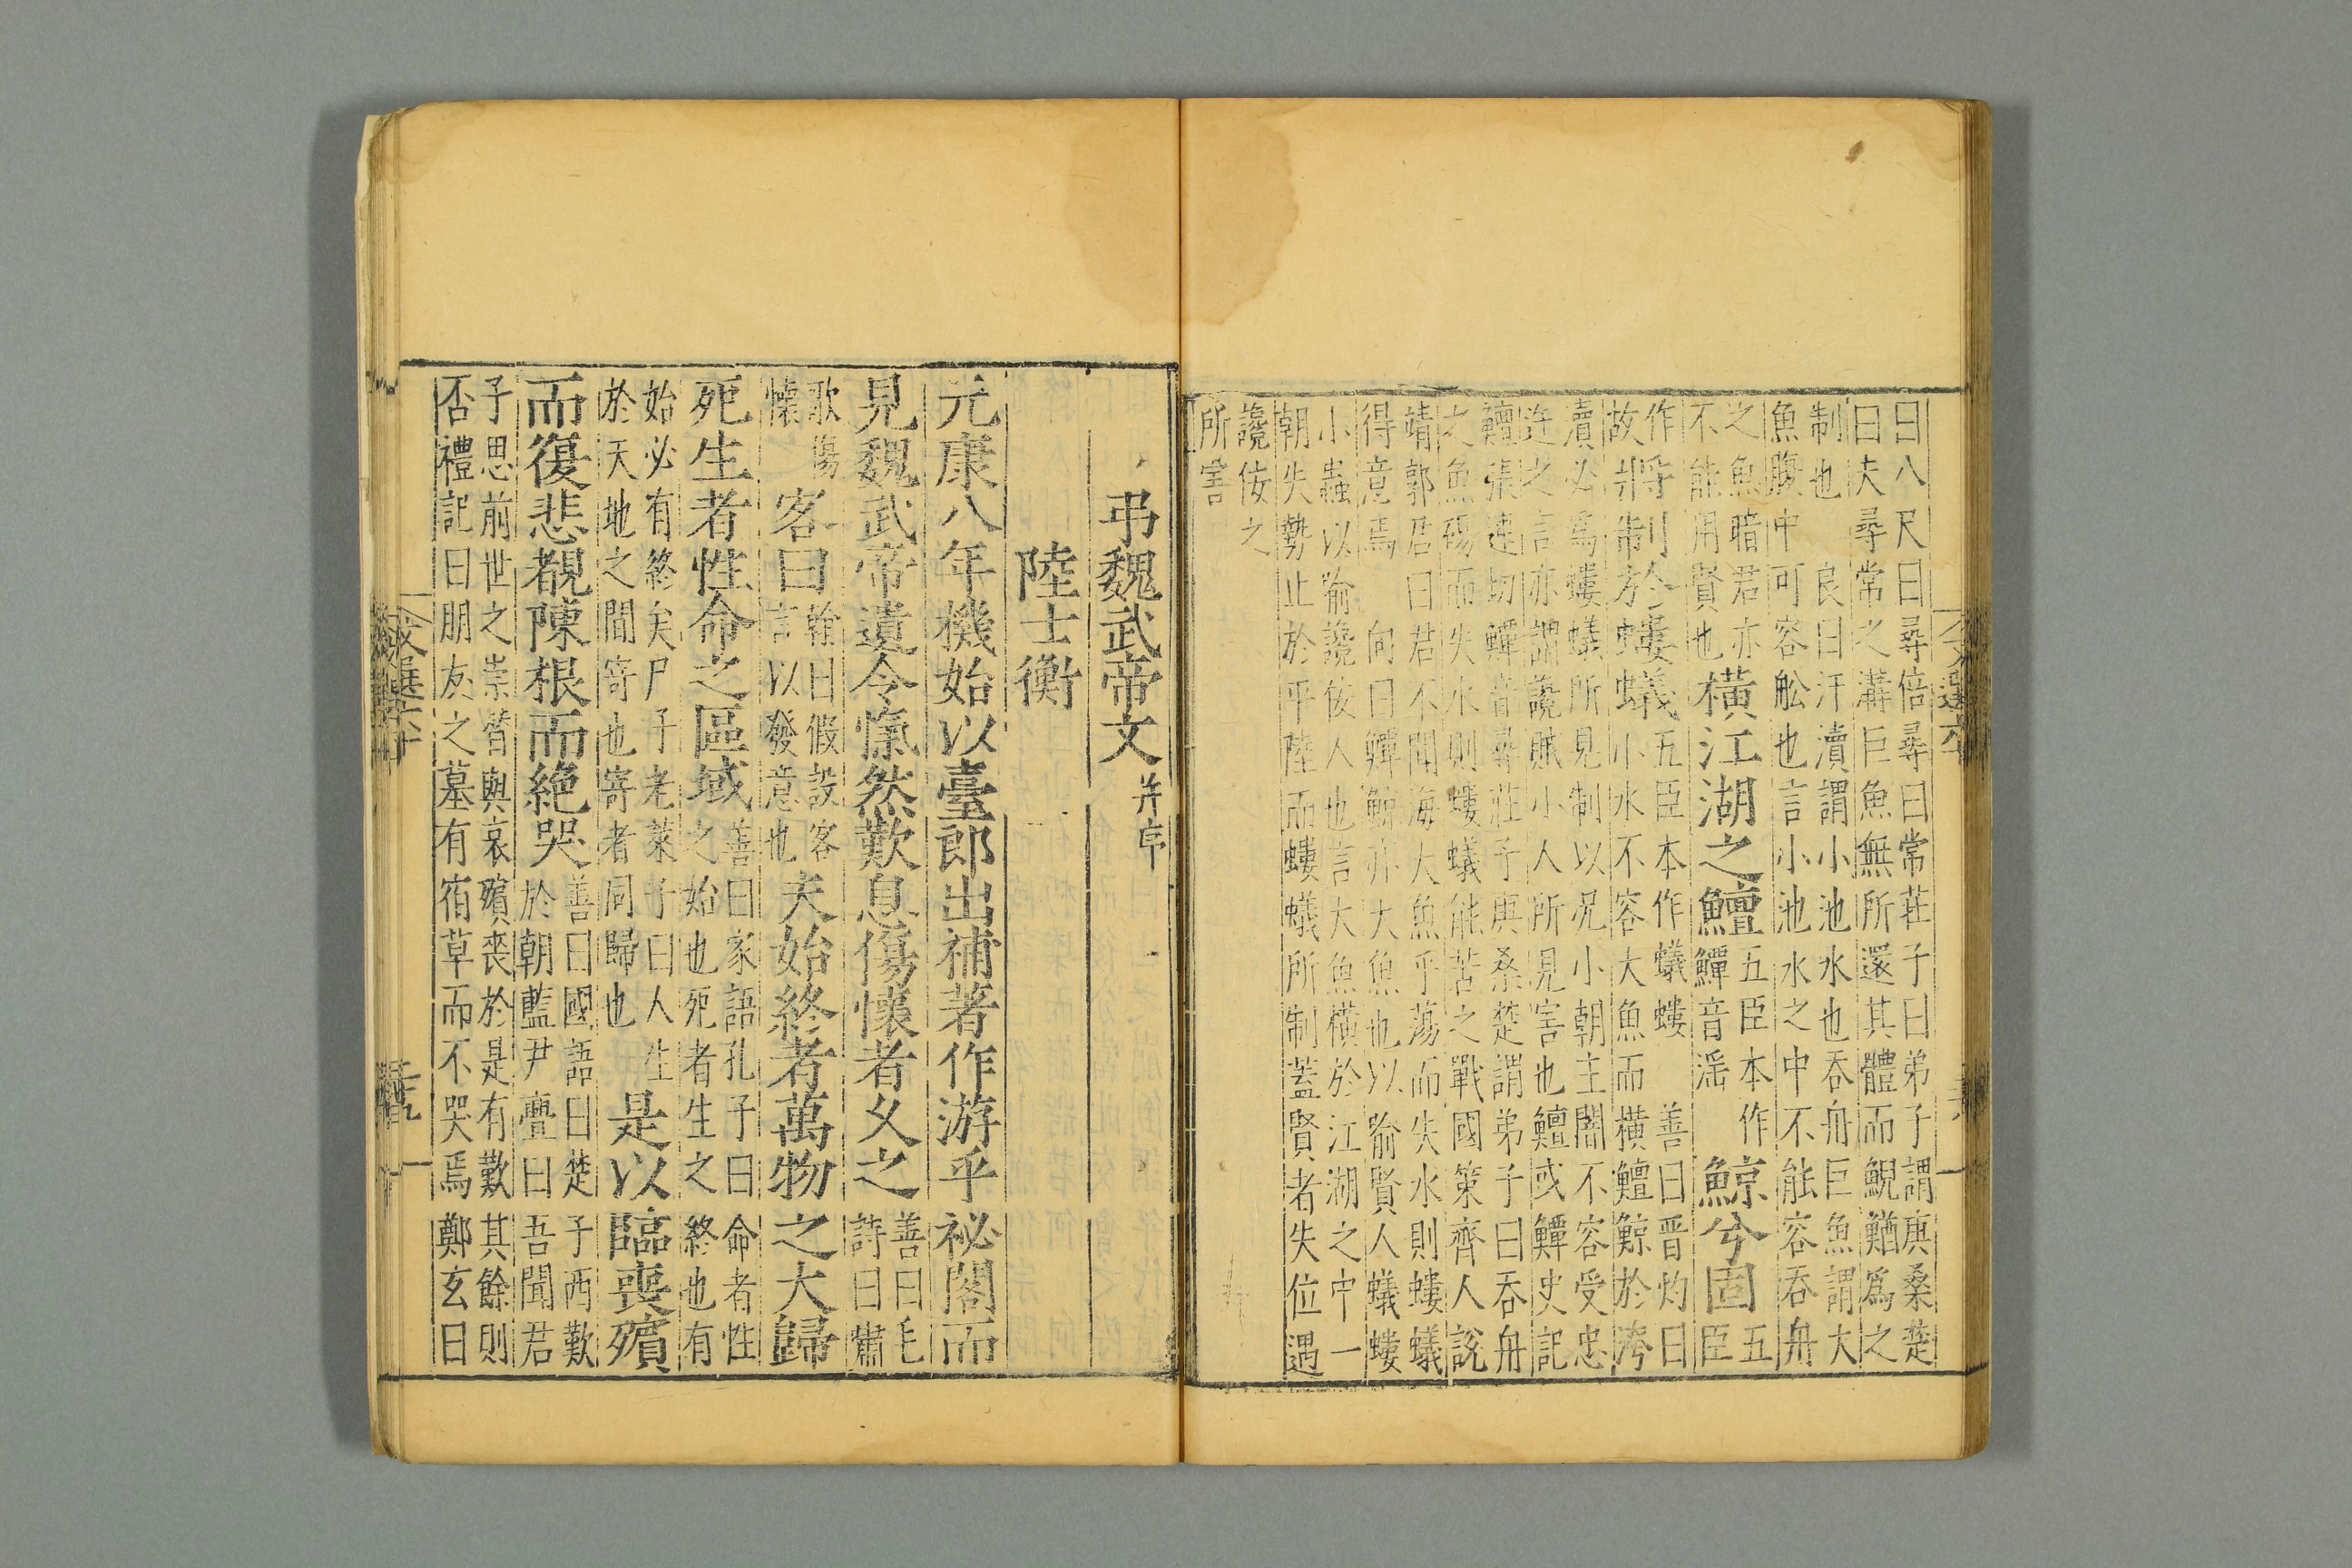 曰八尺曰尋倍尋曰常莊子曰弟子謂庚桑楚
曰夫尋常之溝巨魚無所還其體而鯢鰌為之
制也 良曰汙瀆謂小池水也吞舟巨魚謂大
魚腹中可容舩也言小池水之中不能容吞舟
之魚暗君亦
不能用賢也
橫江湖之鱣
五臣本作
鱏音滛
鯨兮固
五
臣
作將
故
制於螻蟻
五臣本作蟻螻 善曰晋灼曰
小水不容大魚而橫鱣鯨於洿
瀆必為螻蟻所見制以况小朝主闇不容受忠
迕之言亦謂讒賊小人所見害也鱣或鱏史記
鱣張連切鱏音尋莊子庚桑楚謂弟子曰吞舟
之魚碭而失水則螻蟻能苦之戰國策齊人說
靖郭君曰君不聞海大魚乎蕩而失水則螻蟻
得意焉 向曰鱏鯨亦大魚也以喻賢人蟻螻
小蟲以喻讒佞人也言大魚橫於江湖之中一
朝失勢止於平陸而螻蟻所制蓋賢者失位遇
讒佞之
所害
弔魏武帝文 并序
陸士衡
元康八年機始以臺郎出補著作游乎祕閣而
見魏武帝遺令愾然歎息傷懷者久之
善曰毛
詩曰嘯
歌傷
懷
客曰
翰曰假設客
言以發意也
夫始終者萬物之大歸
死生者性命之區域
善曰家語孔子曰命者性
之始也死者生之終也有
始必有終矣尸子老萊子曰人生
於天地之間寄也寄者同歸也
是以臨喪殯
而後悲覩陳根而絶哭
善曰國語曰楚子西歎
於朝藍尹亹曰吾聞君
子思前世之崇替與哀殯喪於是有歎其餘則
否禮記曰朋友之墓有宿草而不哭焉鄭玄曰